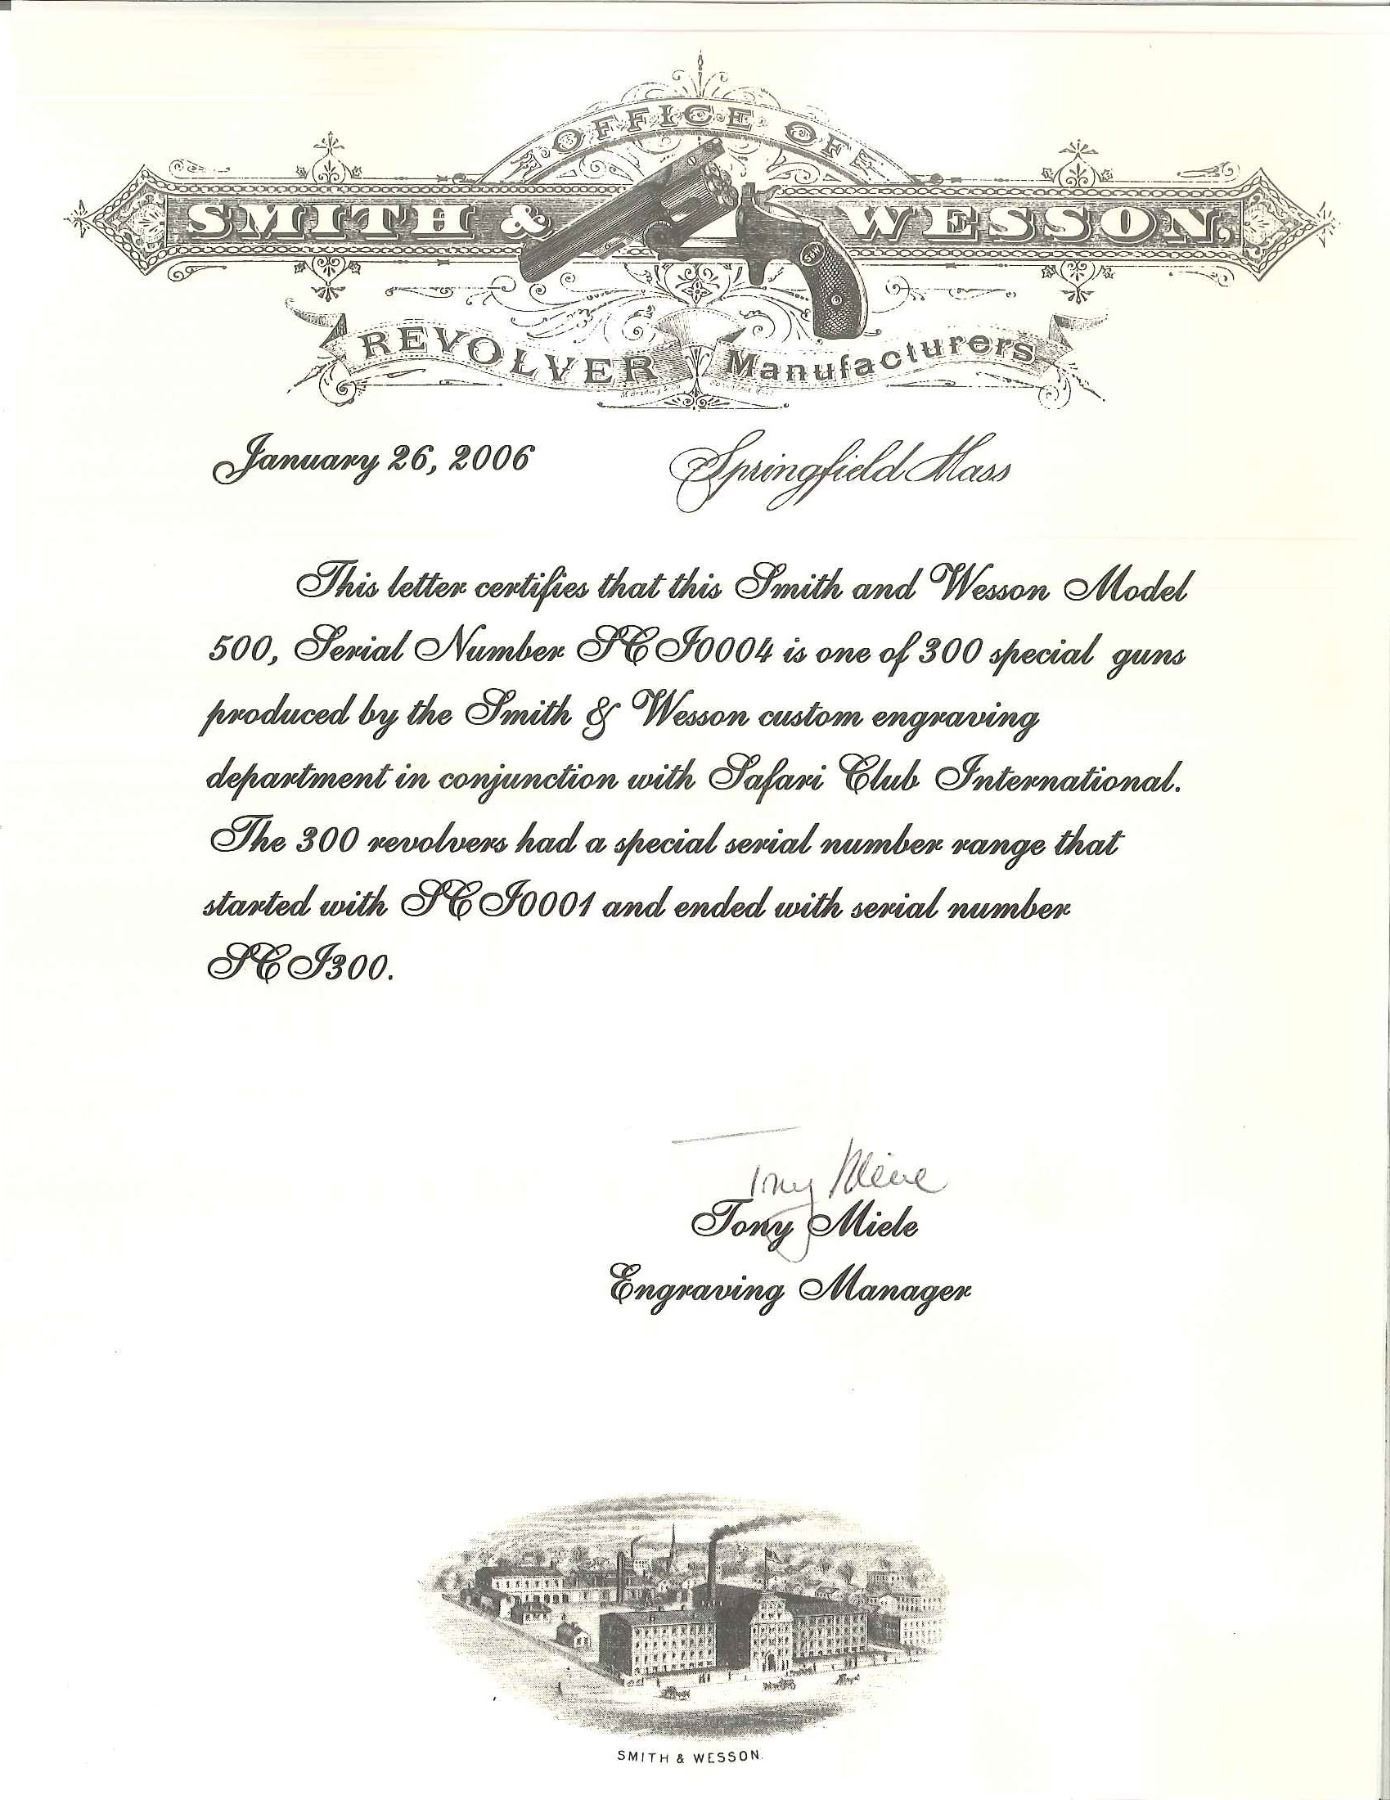 OFFICE OF
SMITH & WESSON,
REVOLVER Manufacturers
January 26, 2006 Springfield Mass
This letter certifies that this Smith and Wesson Model
500, Serial Number SCI0004 is one of 300 special guns
produced by the Smith & Wesson custom engraving
department in conjunction with Safari Club International.
The 300 revolvers had a special serial number range that
started with SCI0001 and ended with serial number
SCI300.
Tony Miele
Tony Miele
Engraving Manager
SMITH & WESSON.